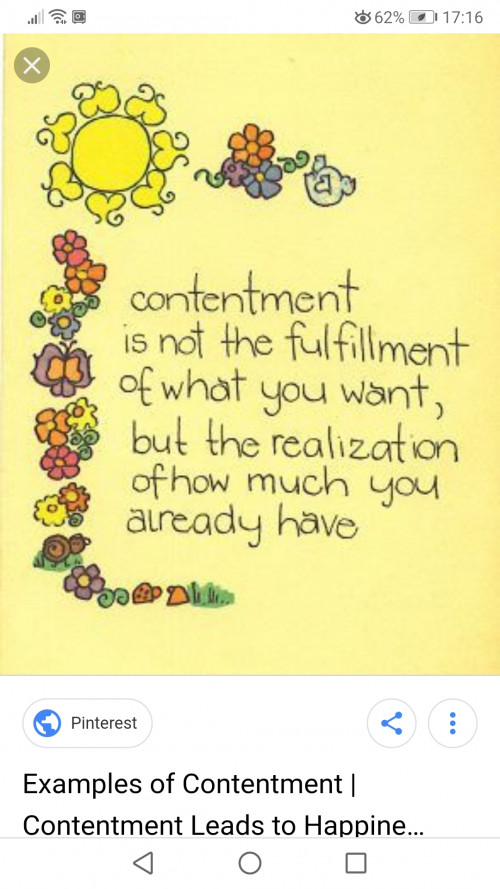 62% 17:16
contentment
is not the fulfillment
of what you want,
but the realization
of how much you
already have
Pinterest
Examples of Contentment |
Contentment Leads to Happine...